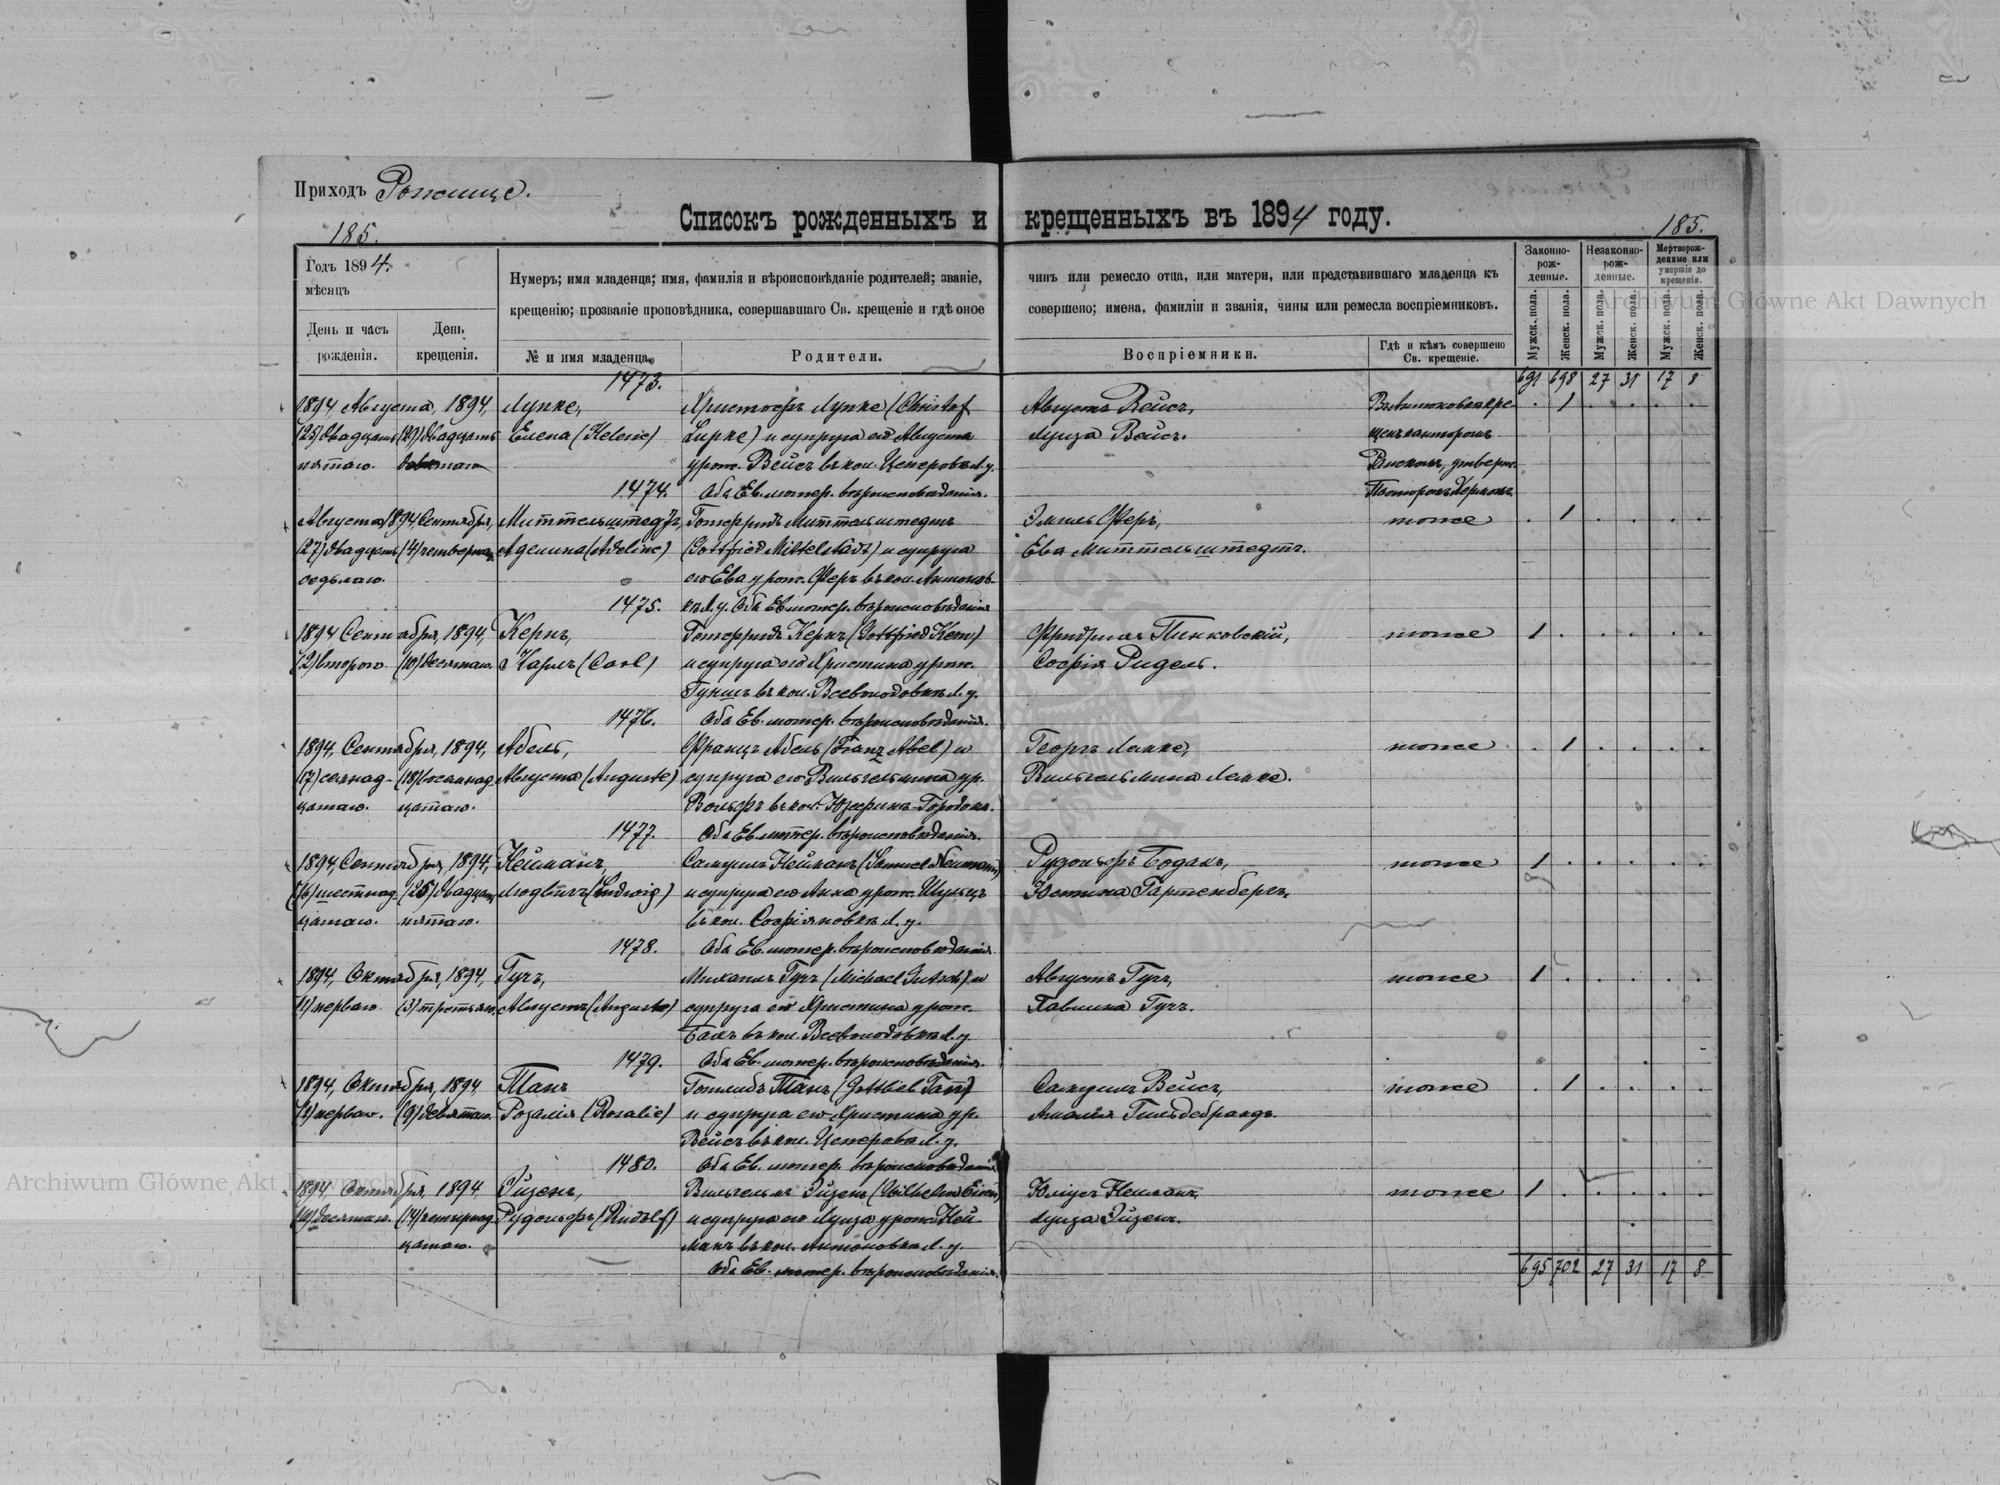 Приходъ Рожище.
Списокъ рожденныхъ и крещенныхъ въ 1894 году.
185.
185.
Годъ 1894.
мѣсяцъ
День и часъ рожденія.
День крещенія.
Нумеръ; имя младенца; имя, фамилія и вѣроисповѣданіе родителей; званіе, чинъ или ремесло отца, или матери, или представившаго младенца къ
крещенію; прозваніе проповѣдника, совершавшаго Св. крещеніе и гдѣ оное совершено; имена, фамиліи и званія, чины или ремесла воспріемниковъ.
№ и имя младенца.
Родители.
Воспріемники.
Гдѣ и кѣмъ совершено Св. крещеніе.
Законно-рож-денные.
Незаконно-рож-денные.
Мертворож-денные или умершіе до крещенія.
Мужск. пола.
Женск. пола.
Мужск. пола.
Женск. пола.
Мужск. пола.
Женск. пола.
691 698 27 31 17 8
1473.
1894 Августа, 1894, Лупке, Христофъ Лупке (Christof Августъ Вейсъ, 1
(25) двадцать (29) двадцать Елена (Helene) Lupke) и супруга его Августа Луиза Вейсъ.
пятаго. девятаго урож. Вейсъ въ кол. Цеперовкѣ Л. у.
1474. Оба Ев. лютер. вѣроисповѣданія.
Августа 1894, Сентября, Миттельштедтъ, Готфридъ Миттельштедтъ Эмиль Феръ, тоже 1
(27) двадцать (4) четвертаго Аделина (Adeline) (Gottfied Mittelstädt) и супруга Ева Миттельштедтъ.
седьмаго. его Ева урож. Феръ въ кол. Антонов-
1475. кѣ Л. у. Оба Ев. лютер. вѣроисповѣданія
1894 Сентября, 1894, Кернъ, Готфридъ Кернъ (Gottfied Kern) Фридрихъ Пинковскій, тоже 1
(2) втораго. (10) десятаго. Карлъ (Carl) и супруга его Христина урож. Софія Ридель.
въ кол. Всеволодовкѣ Л. у.
1476. Оба Ев. лютер. вѣроисповѣданія.
1894, Сентября, 1894, Абель, Францъ Абель (Franz Abel) и Георгъ Лапке, тоже 1
(17) семнад- (18) восемнад- Августа (Auguste) супруга его Вильгельмина ур. Вильгельмина Лапке.
цатаго. цатаго. Вольфъ въ кол. Юзефина-Городокъ.
1477. Оба Ев. лютер. вѣроисповѣданія.
1894, Сентября, 1894, Нейманъ, Самуилъ Нейманъ (Samuel Neumann) Рудольфъ Боданъ, тоже 1
(16) шестнад- (25) двадцать Людвигъ (Ludwig) и супруга его Анна урож. Шульцъ Юстина Гартенбергъ.
цатаго. пятаго. въ кол. Софіяновкѣ Л. у.
1478. Оба Ев. лютер. вѣроисповѣданія
1894, Октября, 1894, Гучъ, Михаилъ Гучъ (Michael Gutsch) и Августъ Гучъ, тоже 1
(1) перваго. (3) третьяго. Августъ супруга его Христина урож. Павлина Гучъ.
въ кол. Всеволодовкѣ Л. у.
1479. Оба Ев. лютер. вѣроисповѣданія.
1894, Октября, 1894 Танъ Готлибъ Танъ (Gottliel Tann) Самуилъ Вейсъ, тоже 1
(1) перваго. (9) девятаго. Розалія (Rosalie) и супруга его Христина ур. Амалія Гильдебрандъ.
Вейсъ въ кол. Цеперовка Л. у.
1480. Оба Ев. лютер. вѣроисповѣданія
1894, Октября, 1894 Эйзенъ, Вильгельмъ Эйзенъ Юліусъ Нейманъ, тоже 1
(10) десятаго. (14) четырнад- Рудольфъ (Rudolf) и супруга его Луиза урож. Ней- Луиза Эйзенъ.
цатаго. манъ въ кол. Антоновка Л. у.
Оба Ев. лютер. вѣроисповѣданія.
695 702 27 31 17 8
Archiwum Główne Akt Dawnych
Archiwum Główne Akt Dawnych